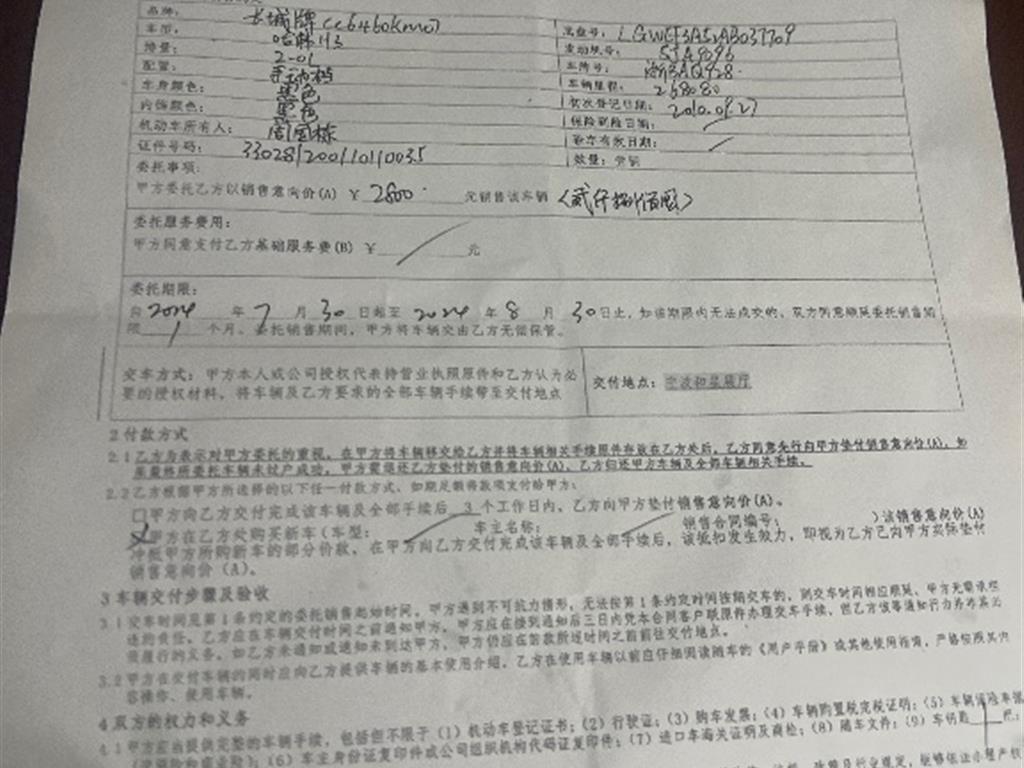 品牌： 长城牌CC6460KM07
车架号： LGWEF3A51AB037709
车型： 哈弗H3
发动机号： SJA9096
排量： 2.0L
车牌号： 浙BAQ928
配置： 手动档
车辆里程： 268080
车身颜色： 黑色
初次登记日期： 2010.09.27
内饰颜色： 黑色
保险到期日期：
机动车所有人： 周国栋
验车有效日期：
证件号码： 330281200110110035
数量： 壹辆
委托事项：
甲方委托乙方以销售意向价(A) ￥ 2800 元销售该车辆 (贰仟捌佰圆)
委托服务费用：
甲方同意支付乙方基础服务费(B) ￥ 元
委托期限：
自 2024 年 7 月 30 日起至 2024 年 8 月 30 日止，如该期限内无法成交的，双方同意顺延委托销售期
限 1 个月。委托销售期间，甲方将车辆交由乙方无偿保管。
交车方式：甲方本人或公司授权代表持营业执照原件和乙方认为必
要的授权材料，将车辆及乙方要求的全部车辆手续带至交付地点
交付地点：宁波和星展厅
2 付款方式
2.1 乙方为表示对甲方委托的重视，在甲方将车辆移交给乙方并将车辆相关手续原件存放在乙方处后，乙方同意先行向甲方垫付销售意向价(A)，如
果最终所委托车辆未过户成功，甲方需退还乙方垫付的销售意向价(A)，乙方归还甲方车辆及全部车辆相关手续。
2.2 乙方根据甲方所选择的以下任一付款方式，如期足额将款项支付给甲方：
口甲方向乙方交付完成该车辆及全部手续后 3 个工作日内，乙方向甲方垫付销售意向价(A)。
甲方在乙方处购买新车(车型： 车主名称： 销售合同编号： )该销售意向价(A)
冲抵甲方所购新车的部分价款，在甲方向乙方交付完成该车辆及全部手续后，该抵扣发生效力，即视为乙方已向甲方实际垫付
销售意向价（A）。
3 车辆交付步骤及验收
3.1 交车时间见第 1 条约定的委托销售起始时间。甲方遇到不可抗力情形，无法按第 1 条约定时间按期交车的，则交车时间相应顺延，甲方无需承担
违约责任。乙方应在车辆交付时间之前通知甲方，甲方应在接到通知后三日内凭本合同客户联原件办理交车手续，但乙方该等通知行为并非其必
须履行的义务。如乙方未通知或通知未到达甲方，甲方仍应在前款所述时间之前前往交付地点。
3.2 甲方在交付车辆的同时应向乙方提供车辆的基本使用介绍，乙方在使用车辆以前应仔细阅读随车的《用户手册》或其他使用指南，严格按照其内
容操作、使用车辆。
4 双方的权力和义务
4.1 甲方应当提供完整的车辆手续，包括但不限于（1）机动车登记证书；（2）行驶证；（3）购车发票；（4）车辆购置税完税证明；（5）车辆保险单据
；（6）车主身份证复印件或公司组织机构代码证复印件；（7）进口车海关证明及商检；（8）随车文件；（9）车钥匙 把；